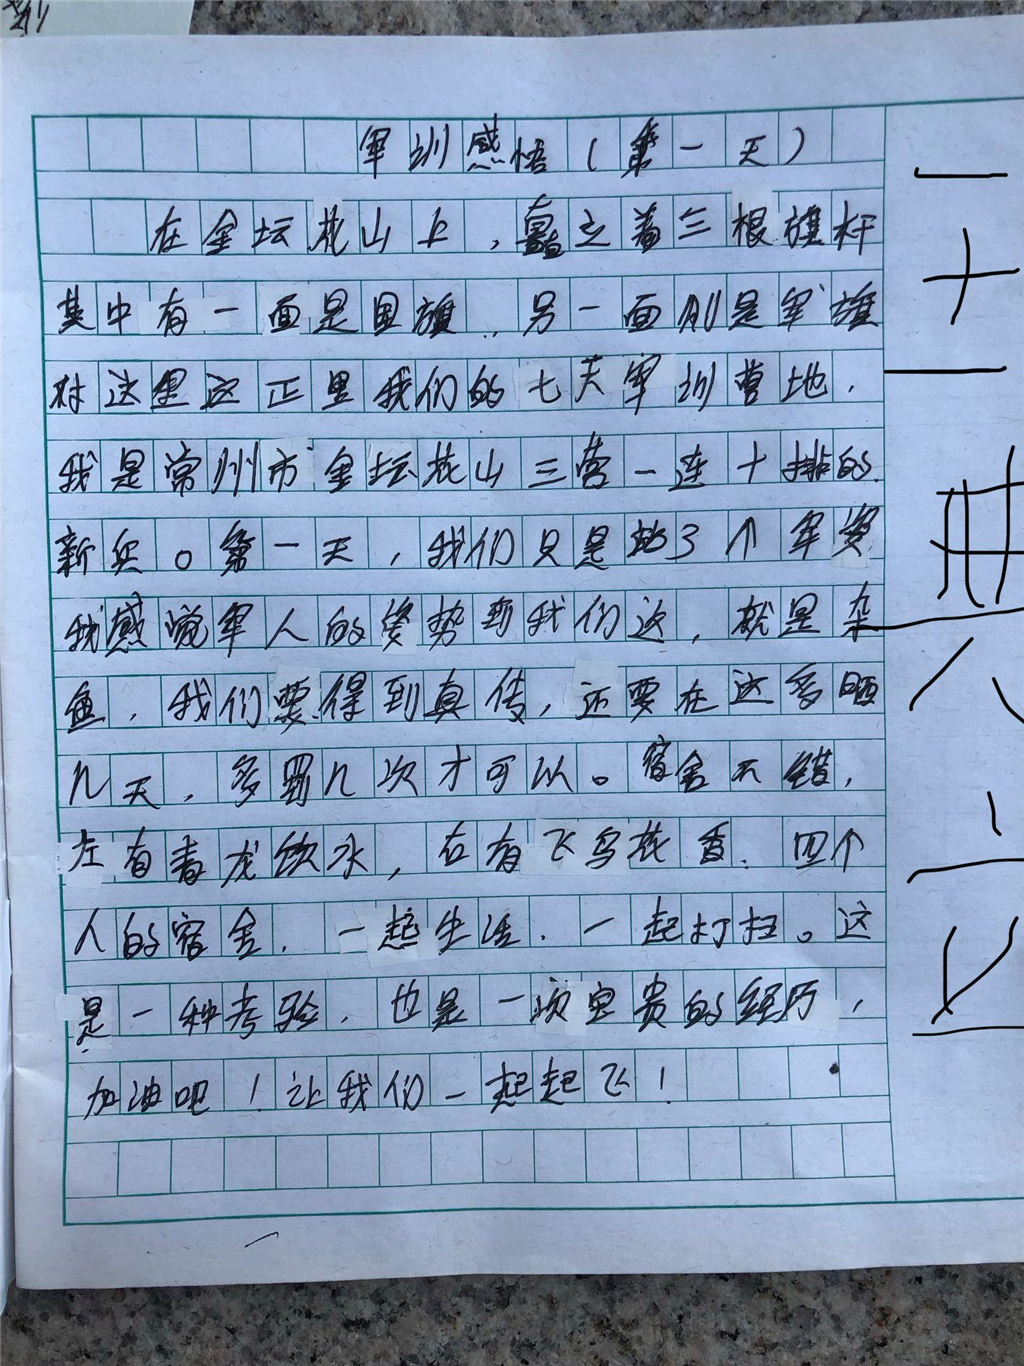 军训感悟（第一天）
在金坛茅山上，矗立着三根旗杆
其中有一面是国旗，另一面则是军旗
对这里这正里我们的七天军训营地，
我是常州市金坛花山三营一连十排的
新兵。第一天，我们只是站3个军姿
我感觉军人的姿势到我们这，就是杂
鱼，我们要得到真传，还要在这多晒
几天，多骂几次才可以。宿舍不错，
左有青龙饮水，右有飞鸟花香．四个
人的宿舍．一起生活．一起打扫。这
是一种考验．也是一项宝贵的经历，
加油吧！让我们一起起飞！